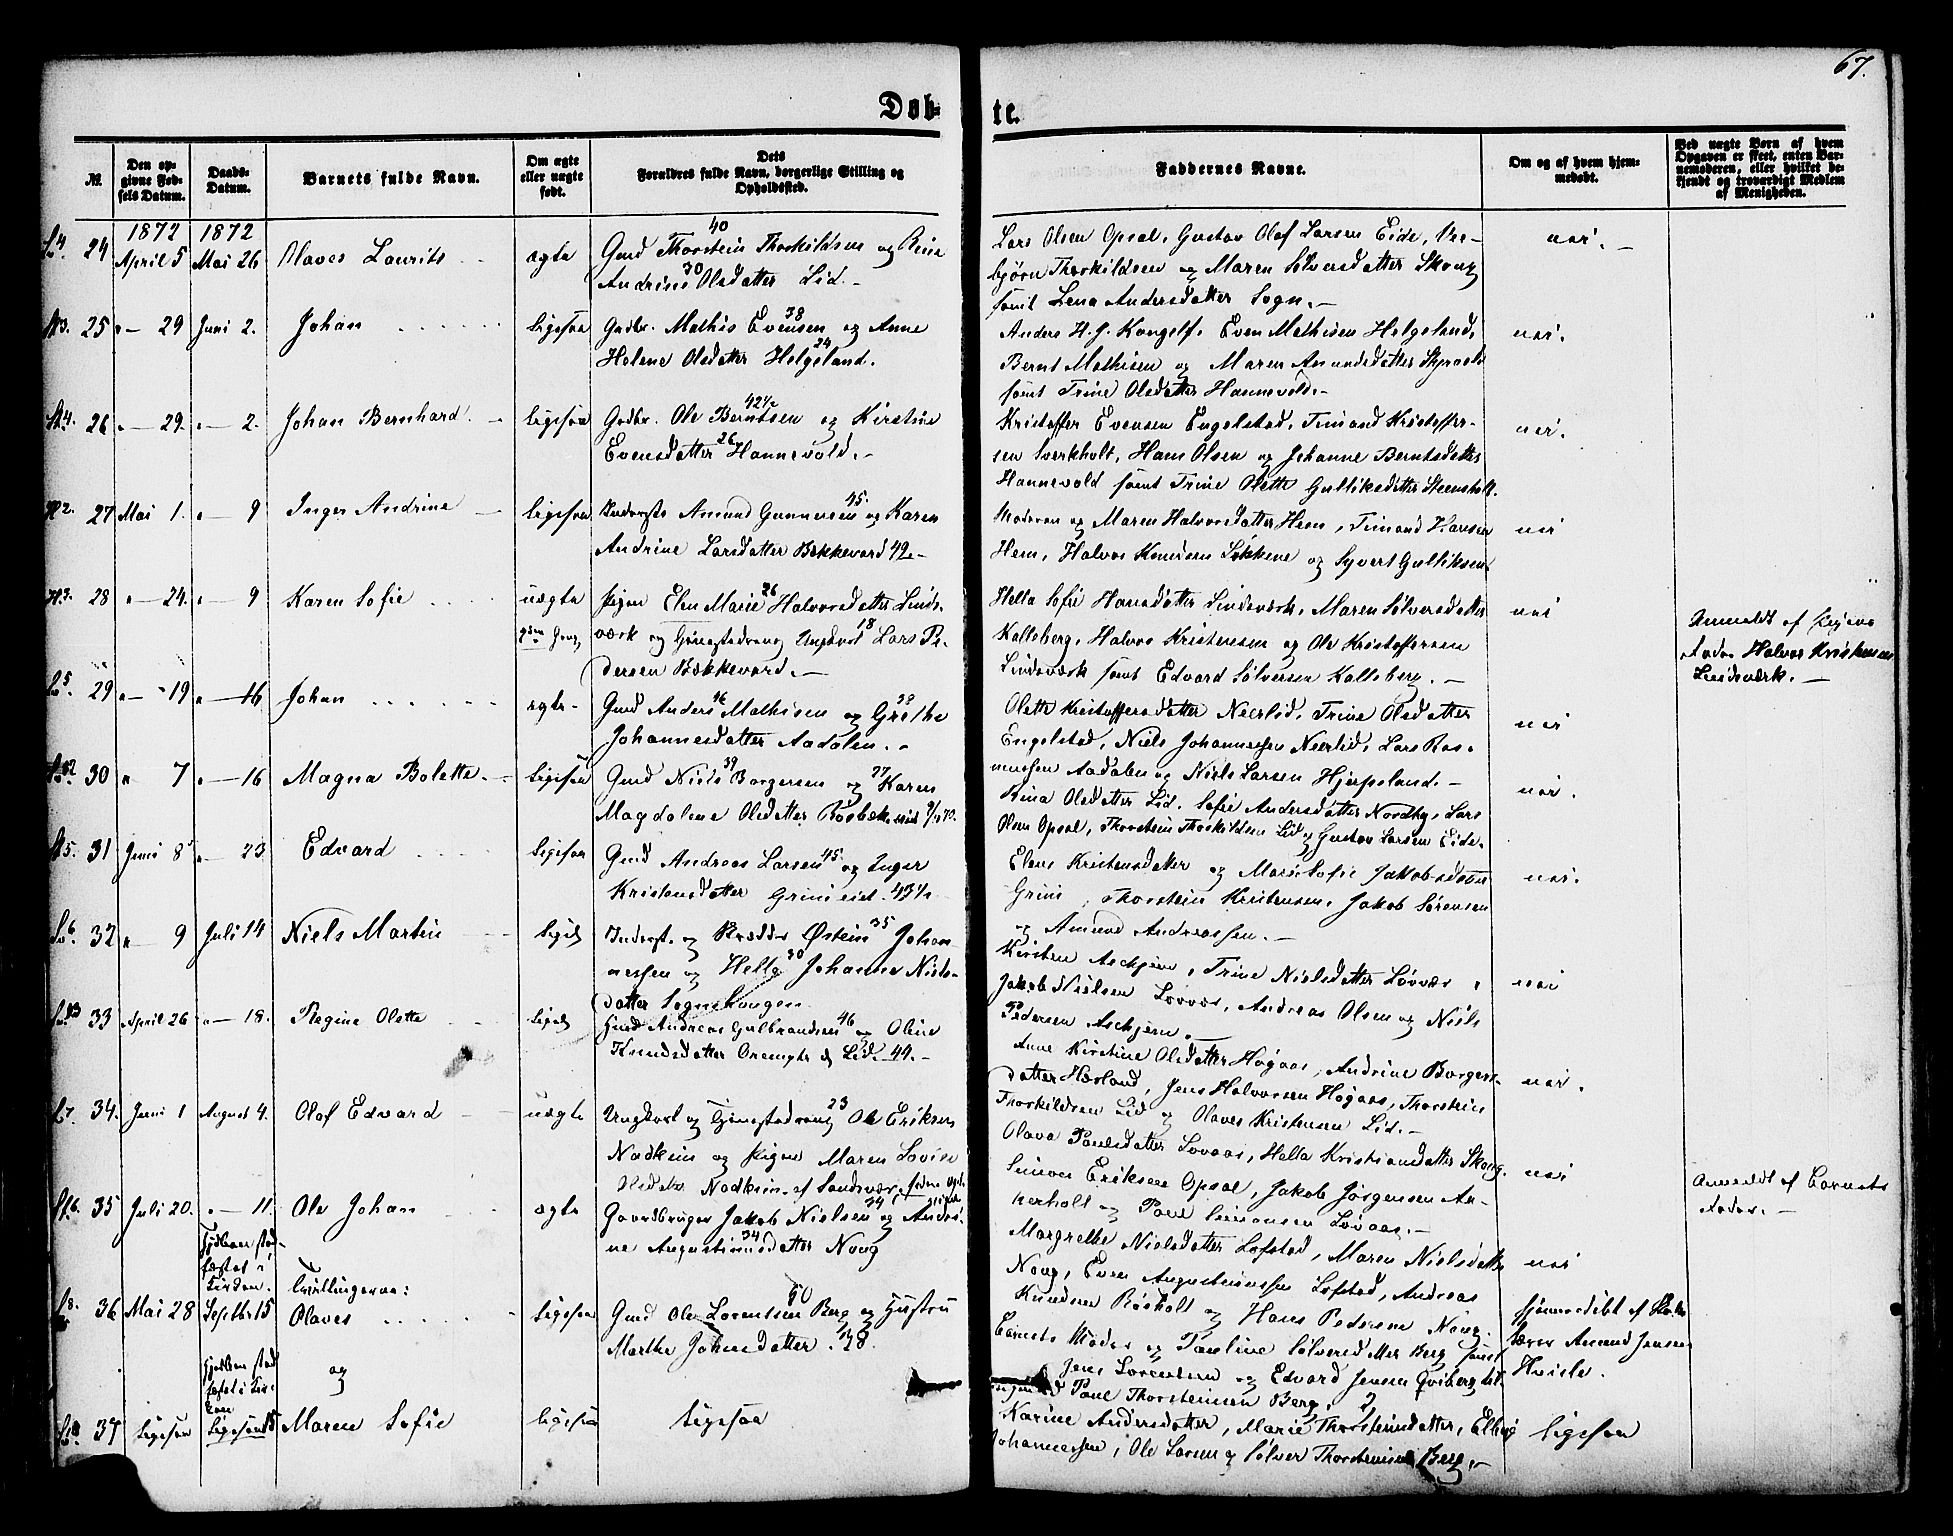 67.
Døb-
te.
№.
Den op-
givne Fød-
sels Datum.
Daabs-
Datum.
Barnets fulde Navn.
Om ægte
eller uægte
født.
Dets
Forældres fulde Navn, borgerlige Stilling og
Opholdssted.
Faddernes Navne.
Om og af hvem hjem-
medøbt.
Ved uægte Børn af hvem
Opgaven er skeet, enten Bar-
nemoderen, eller hvilket be-
kjendt og troværdigt Medlem
af Menigheden.
1872 1872
24 April 5 Mai 26 Olaves Laurits ægte
Gmd Thorstein Thorkildsen 40 og Rina
Andrine 30 Olsdatter Lid.-
Lars Olsen Opsal, Gustav Olaf Larsen Eide, Ves-
bjørn Thorkildsen og Maren Sølversdatter Skoug
samt Lena Andersdatter Sogn.-
nei.-
25 - 29 Juni 2. Johan ligesaa
Gadbr. Mathis Evensen 38 og Anne
Helene Olsdatter 24 Helgeland.
Anders H. J. Kongelf. Even Mathisen Helgeland,
Bernt Mathisen og Maren Amundsdatter
samt Trine Olsdatter Hannevold.-
nei.
26 - 29 - 2. Johan Bernhard. ligesaa
Gadbr. Ole Berntsen 42½ og Kirstine
Evensdatter 26 Hannevold.-
Kristoffer Evensen Engelstad, Simund Kristoffer-
sen Sverkholt, Hans Olsen og Johanne Berntsdatter
Hannevold samt Trine Olette Gulliksdatter Steensholt.
nei.
27 Mai 1. - 9 Inger Andrine ligesaa
Inderste Amund Gunnersen 45. og Karen
Andrine Larsdatter Bækkevard 42.-
Moderen og Maren Halvorsdatter Hem, Simund Hansen
Hem, Halvor Knudsen Løkkene og Syvert Gulliksen.
nei
28 - 24. - 9 Karen Sofie uægte
Pigen Elen Marie 26 Halvorsdatter Linds-
værk og Gjenstedvang Ungkarl 18 Lars Pe-
dersen Bækkevard.-
Hella Sofie Hansdatter Lindsværk, Maren Sølversdatter
Kallsberg, Halvor Kristensen og Ole Kristoffersen
Lindsværk samt Edvard Sølversen Kallsberg.-
nei
Anmeldt af Pigens
Fader Halvor Kristensen
Lindsværk.-
29 - 19 - 16 Johan ægte
Gmd Anders 46 Mathisen og Grethe 39
Johannesdatter Aadalen.-
Olette Kristoffersdatter Neerlid, Trine Olsdatter
Engelstad, Niels Johannessen Neerlid, Lars Ras-
mussen Aadalen og Niels Larsen Hjerpeland.-
nei
30 - 7 - 16 Magna Bolette. ligesaa
Gmd Niels 39 Borgersen og 37 Karen
Magdalene Olsdatter
Rina Olsdatter Lid. Sofie Andersdatter Nordby, Lars
Olsen Opsal, Thorstein Thorkildsen Lid og Gustav Larsen Eide.
nei.
31 Juni 8 - 23 Edvard ligesaa
Gmd Andreas Larsen 45. og Inger
Kristensdatter Grini eid. 43½
Elene Kristensdatter og Marie Sofie Jakobsdatter
Grini, Thorstein Kristensen, Jakob Sørensen
og Amund Andreassen.-
nei.
32 - 9 Juli 14 Niels Martin ligeså
Inderst. og Skrædder Østein 35 Johan-
nessen og Helle 30 Johanne Niels-
datter Sogneskougen
Kirsten Askjem, Trine Nielsdatter Løvaas,
Jakob Nielsen Løvaas, Andreas Olsen og Niels
Pedersen Askjem.
nei
33 April 26 - 18. Regine Olette ligeså
Gmd Andreas Gulbrandsen 46 og Oline
Knudsdatter Lid. 44.-
Anne Kirstine Olsdatter Høgaas, Andrine Borgers-
datter Hæsland, Jens Halvorsen Høgaas, Thorstein
Thorkildsen Lid og Olaves Kristensen Lid.-
nei.
34. Juni 1 August 4. Olaf Edvard uægte
Ungkarl og Gjenstedvang 23 Ole Eriksen
Nadkim og Pigen Maren Lovise
Olsdatter Nadkim. af Sandsvær.
Olava Paulsdatter Lovaas, Hella Kristiansdatter Skoug.
Simon Eriksen Opsal, Jakob Jørgensen An-
nerholt og Paul Simonsen Lovaas.-
nei
Anmeldt af Barnets
Fader.-
35 Juli 20. - 11. Ole Johan ægte
Gaardbruger Jakob Nielsen 34 og Andri-
ne Augustinusdatter 34 Noug
Margrethe Nielsdatter Løfstad, Maren Nielsdatter
Noug, Even Augustinussen Løfstad, Andreas
Knudsen Røsholt og Hans Pedersen Noug.
nei
Hjdøben stad-
fæstet i
Kirken. Tvillingerne:
36 Mai 28 Septbr 15 Olaves ligesaa
Gmd Ole Lorentsen 50 Berg og Hustru
Marthe Johnsdatter. 48.
Barnets Moder og Pauline Sølversdatter Berg samt
Jens Lorentsen og Edvard Jensen Qviberg
Paul Thorsteinsen Berg.
Hjemmedøbt af Skole-
lærer Amund Jensen
Hvisle.
Hjdøben stad-
fæstet i Kir-
ken og
37 Ligesaa Ligesaa 15 Maren Sofie ligesaa
Ligesaa
Karine Andersdatter, Marie Thorsteinsdatter, Elling
Johannessen, Ole Larsen og Sølver Thorsteinsen Berg.-
ligesaa